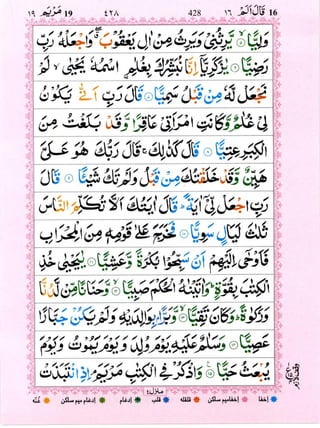 ١٩ مَرْيَم 19 ٤٢٨ 428 ١٦ قَالَ اَلَمْ 16
وَلِيًّا ۙ﴿۵﴾ يَّرِثُنِيْ وَيَرِثُ مِنْ اٰلِ يَعْقُوْبَ ۖ وَاجْعَلْهُ رَبِّ
رَضِيًّا ﴿۶﴾ يٰزَكَرِيَّآ اِنَّا نُبَشِّرُكَ بِغُلٰمِ ۨاسْمُهٗ يَحْيٰى ۙ لَمْ
نَجْعَلْ لَّهٗ مِنْ قَبْلُ سَمِيًّا ﴿۷﴾ قَالَ رَبِّ اَنّٰى يَكُوْنُ
لِيْ غُلٰمٌ وَّكَانَتِ امْرَاَتِيْ عَاقِرًا وَّقَدْ بَلَغْتُ مِنَ
الْكِبَرِ عِتِيًّا ﴿۸﴾ قَالَ كَذٰلِكَ ۚ قَالَ رَبُّكَ هُوَ عَلَيَّ
هَيِّنٌ وَّقَدْ خَلَقْتُكَ مِنْ قَبْلُ وَلَمْ تَكُ شَيْـًٔا ﴿۹﴾ قَالَ
رَبِّ اجْعَلْ لِّيْٓ اٰيَةً ؕ قَالَ اٰيَتُكَ اَلَّا تُكَلِّمَ النَّاسَ
ثَلٰثَ لَيَالٍ سَوِيًّا ﴿۱۰﴾ فَخَرَجَ عَلٰى قَوْمِهٖ مِنَ الْمِحْرَابِ
فَاَوْحٰٓى اِلَيْهِمْ اَنْ سَبِّحُوْا بُكْرَةً وَّعَشِيًّا ﴿۱۱﴾ يٰيَحْيٰى خُذِ
الْكِتٰبَ بِقُوَّةٍ ؕ وَاٰتَيْنٰهُ الْحُكْمَ صَبِيًّا ۙ﴿۱۲﴾ وَّحَنَانًا مِّنْ لَّدُنَّا
وَزَكٰوةً ؕ وَكَانَ تَقِيًّا ۙ﴿۱۳﴾ وَّبَرًّا ۢ بِوَالِدَيْهِ وَلَمْ يَكُنْ جَبَّارًا
عَصِيًّا ﴿۱۴﴾ وَسَلٰمٌ عَلَيْهِ يَوْمَ وُلِدَ وَيَوْمَ يَمُوْتُ وَيَوْمَ
يُبْعَثُ حَيًّا ﴿۱۵﴾ وَاذْكُرْ فِي الْكِتٰبِ مَرْيَمَ ۘ اِذِ انْتَبَذَتْ
منزل ٤
اخفا اخفامیم ساکن قلقلہ قلب ادغام ادغام میم ساکن غنّہ